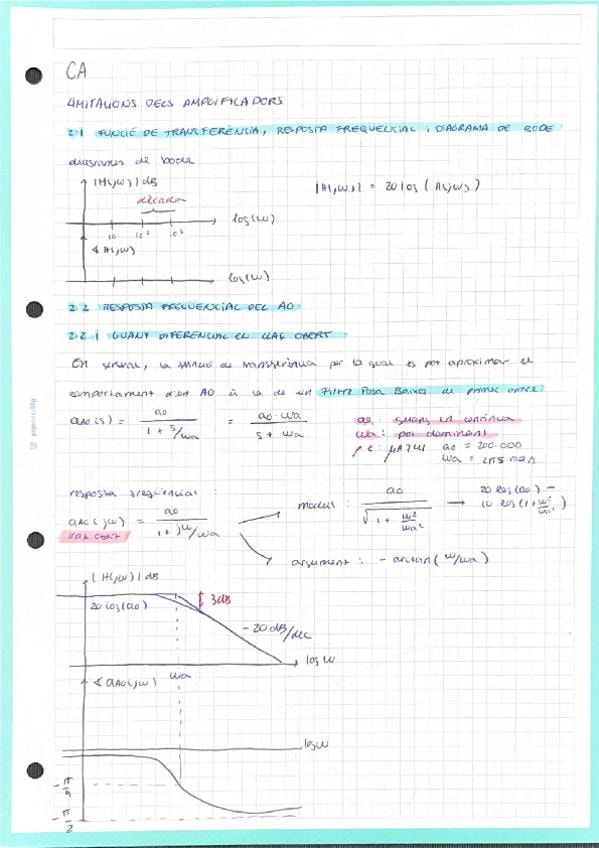 CA
LIMITACIONS DELS AMPLIFICADORS
2.1 FUNCIÓ DE TRANSFERÈNCIA, RESPOSTA FREQUENCIAL i DIAGRAMA DE BODE
diagrames de bode
|H(jω)| dB
|H(jω)| = 20 log (H(jω))
dècades
log(ω)
10 10² 10³
∢ H(jω)
log(ω)
2.2 RESPOSTA FREQÜENCIAL DEL AO
2.2.1 GUANY DIFERENCIAL EN LLAÇ OBERT
En general, la funció de transferència per la qual es pot aproximar el
comportament d'un AO és la de un Filtre Passa Baixos de primer ordre:
aAO(s) = a0 / (1 + s/ωa) = a0·ωa / (s + ωa)
a0: guany en contínua
ωa: pol dominant
μA741 a0 = 200.000
ωa = 2π5 rad/s
resposta freqüencial:
aAO(jω) = a0 / (1 + jω/ωa)
llaç obert
mòdul: a0 / √(1 + ω²/ωa²) → 20 log(a0) − 10 log(1+ω²/ωa²)
argument: − arctan(ω/ωa)
|H(jω)| dB
20 log(a0)
3dB
−20 dB/dec
log ω
ωa
∢ aAO(jω)
log ω
−π/4
−π/2